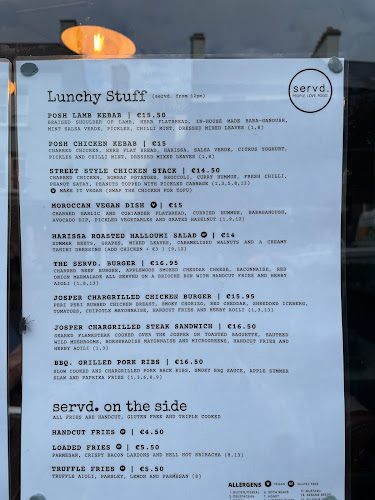 servd.
PEOPLE. LOVE. FOOD.
Lunchy Stuff (servd. from 12pm)
POSH LAMB KEBAB | €15.50
BRAISED SHOULDER OF LAMB, HERB FLATBREAD, IN-HOUSE MADE BABA-GANOUSH,
MINT SALSA VERDE, PICKLES, CHILLI MINT, DRESSED MIXED LEAVES (1,8)
POSH CHICKEN KEBAB | €15
CHARRED CHICKEN, HERB FLAT BREAD, HARISSA, SALSA VERDE, CITRUS YOGHURT,
PICKLES AND CHILLI MINT, DRESSED MIXED LEAVES (1,8)
STREET STYLE CHICKEN STACK | €14.50
CHARRED CHICKEN, BOMBAY POTATOES, BROCCOLI, CURRY HUMMUS, FRESH CHILLI,
PEANUT SATAY, PEANUTS TOPPED WITH PICKLED CABBAGE
MAKE IT VEGAN (SWAP THE CHICKEN FOR
MOROCCAN VEGAN DISH | €15
CHARRED GARLIC AND CORIANDER FLATBREAD, CURRIED HUMMUS, BABAGANOUSH,
AVOCADO DIP, PICKLED VEGETABLES AND GRATED HAZELNUT (1,9,10)
HARISSA ROASTED HALLOUMI SALAD | €14
SUMMER BEETS, GRAPES, MIXED LEAVES, CARAMELISED WALNUTS AND A CREAMY
TAHINI DRESSING (ADD CHICKEN + €3 )
THE SERVD. BURGER | €16.95
CHARRED BEEF BURGER, APPLEWOOD SMOKED CHEDDAR CHEESE, BACONNAISE, RED
ONION MARMALADE ALL SERVED ON A BRIOCHE BUN WITH HANDCUT FRIES AND HERBY
AIOLI
JOSPER CHARGRILLED CHICKEN BURGER | €15.95
PERI PERI RUBBED CHICKEN BREAST, SMOKY CHORIZO, RED CHEDDAR, SHREDDED ICEBERG,
TOMATOES, CHIPOTLE MAYONNAISE, HANDCUT FRIES AND HERBY AIOLI
JOSPER CHARGRILLED STEAK SANDWICH | €16.50
SEARED FLAMESTEAK COOKED OVER THE JOSPER ON TOASTED BAGUETTE, SAUTEED
WILD MUSHROOMS, HORSERADISH MAYONNAISE AND MICROGREENS, HANDCUT FRIES AND
HERBY AOILI
BBQ. GRILLED PORK RIBS | €16.50
SLOW COOKED AND CHARGRILLED PORK RACK RIBS, SMOKY BBQ SAUCE, APPLE SIMMER
SLAW AND PAPRIKA FRIES
servd. on the side
ALL FRIES ARE HANDCUT, GLUTEN FREE AND TRIPLE COOKED
HANDCUT FRIES | €4.50
LOADED FRIES | €5.50
PARMESAN, CRISPY BACON LARDONS AND BELL HOT SRIRACHA
TRUFFLE FRIES | €5.50
TRUFFLE AIOLI, PARSLEY, LEMON AND PARMESAN
ALLERGENS